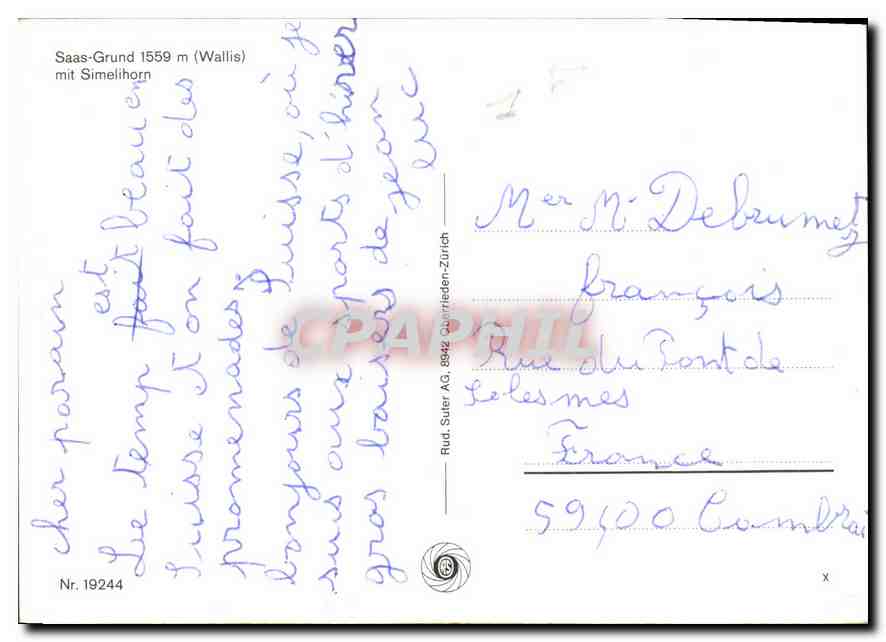 Saas-Grund 1559 m (Wallis)
mit Simelihorn
cher parain
est
Le temp fait beau en
Suisse et on fait des
promenades.
bonjours de Suisse, où je
suis aux sports d'hiver
gros baisers de jean
luc
Rud. Suter AG, 8942 Oberrieden-Zürich
Mer Mr Debrumetz
françois
Rue du Pont de
Selesmes
France
59400 Cambrai
Nr. 19244
x
CPAPHIL